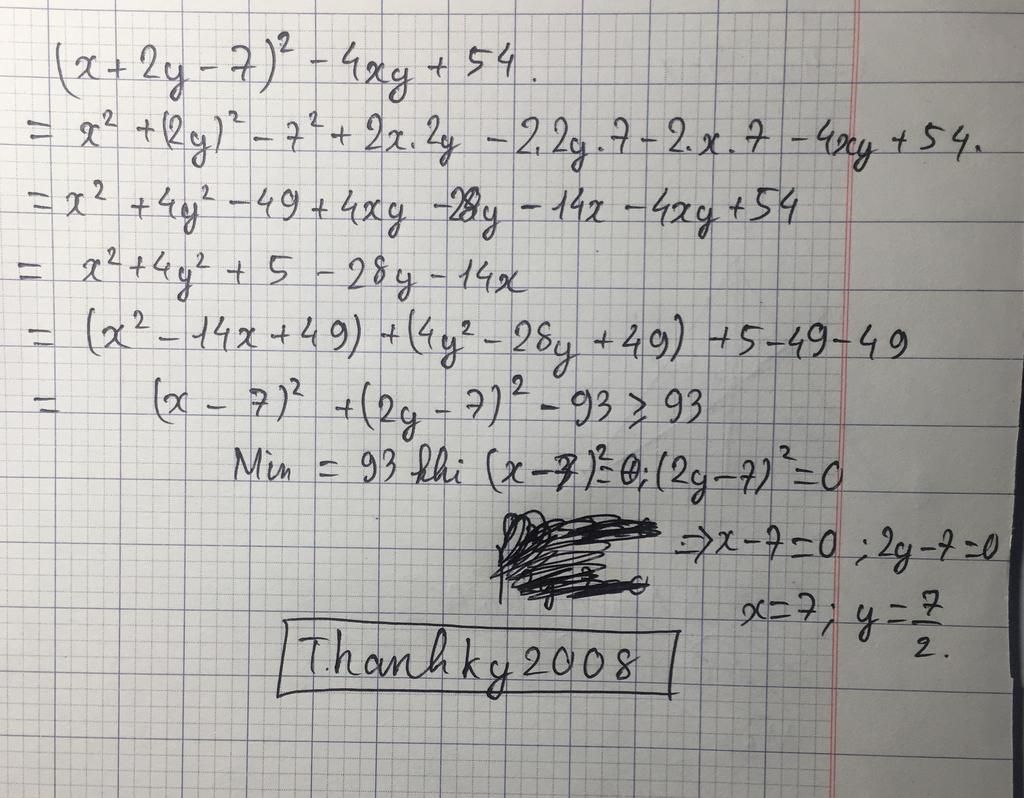 (x + 2y - 7)² - 4xy + 54.
= x² + (2y)² - 7² + 2x.2y - 2.2y.7 - 2.x.7 - 4xy + 54.
= x² + 4y² - 49 + 4xy - 28y - 14x - 4xy + 54
= x² + 4y² + 5 - 28y - 14x
= (x² - 14x + 49) + (4y² - 28y + 49) + 5 - 49 - 49
= (x - 7)² + (2y - 7)² - 93 ≥ 93
Min = 93 khi (x - 7)² = 0; (2y - 7)² = 0
⇒ x - 7 = 0 ; 2y - 7 = 0
x = 7; y = 7/2.
Thanhky2008